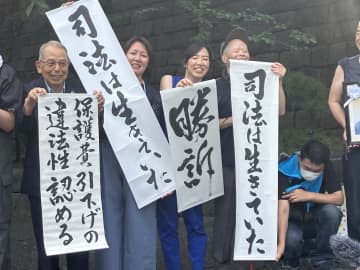 保護費引下げの
違法性認める
司法は生きていた
勝訴
司法は生きていた